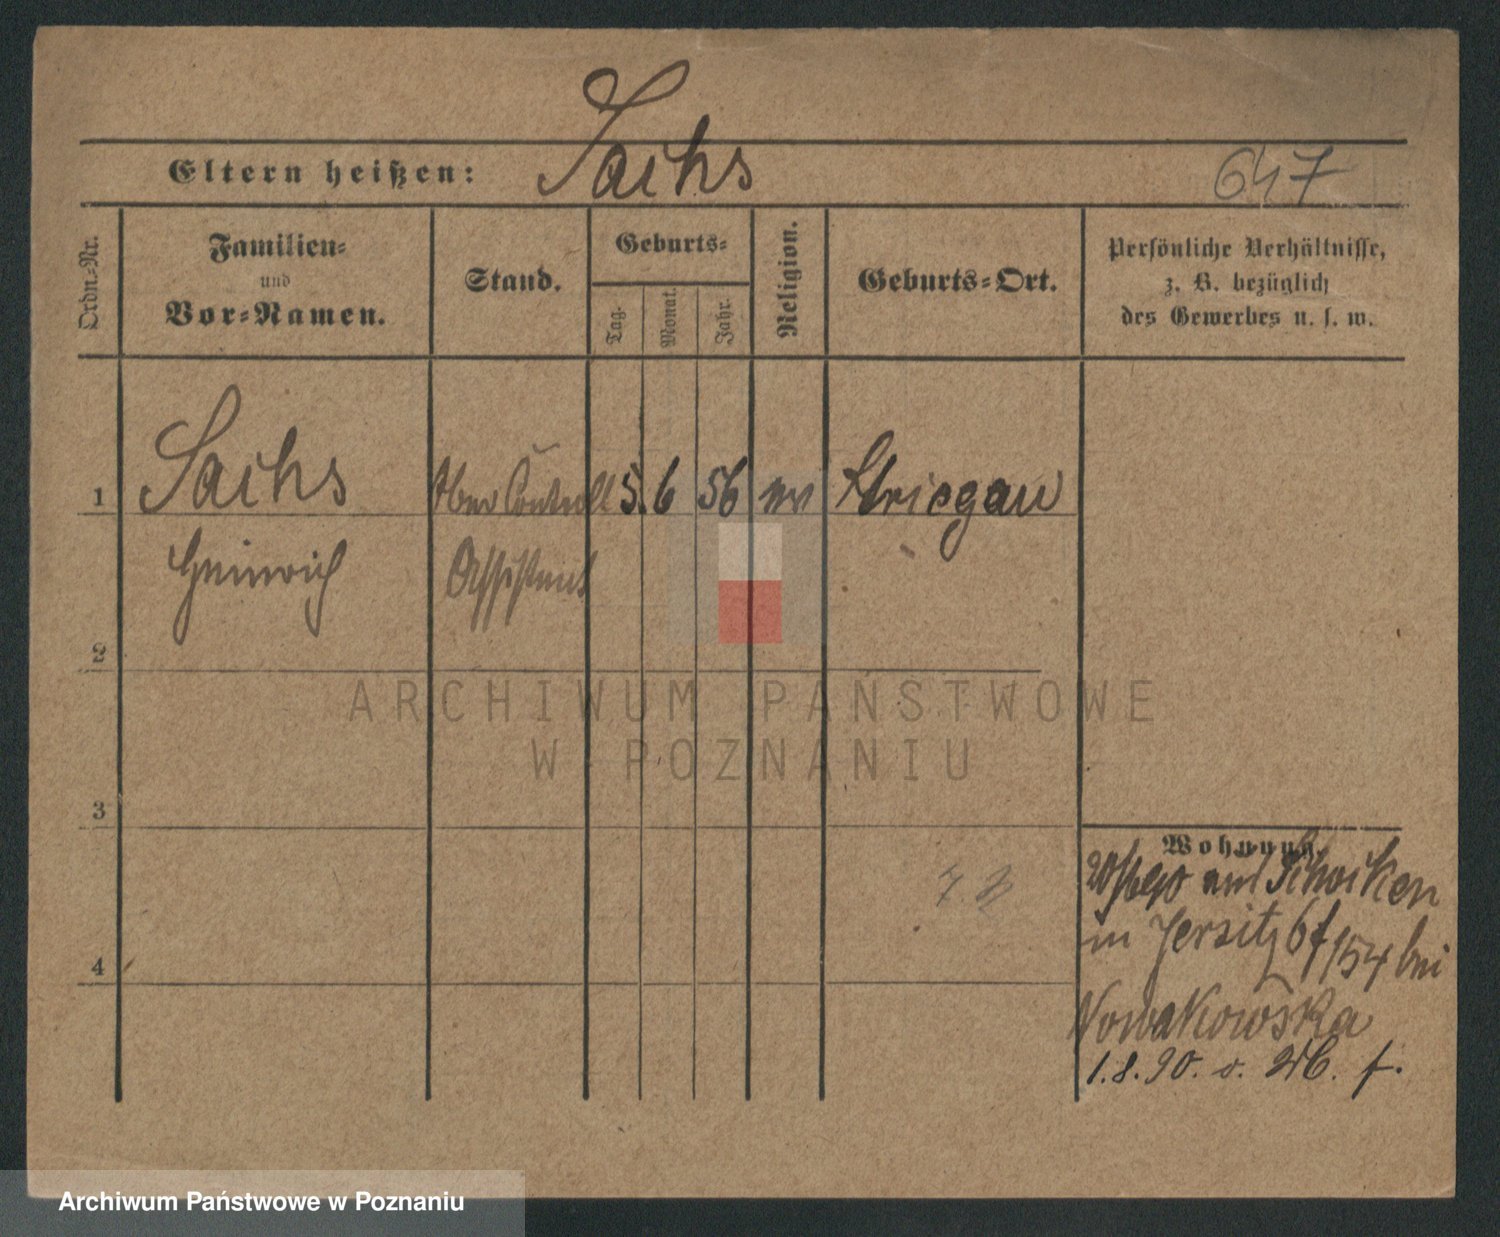 Eltern heißen: Sachs 647
Ordn.-Nr.
Familien- und Vor-Namen.
Stand.
Geburts-
Tag. Monat. Jahr.
Religion.
Geburts-Ort.
Persönliche Verhältnisse,
z. B. bezüglich
des Gewerbes u. s. w.
1 Sachs Ober Controll 5. 6 56 ev Striegau
Heinrich Assistent
2
3
Wohnung.
und Schocken
in Jersitz 6/ 154 bei
4
Nowakowska
1.8.90. v.
ARCHIWUM PAŃSTWOWE
W POZNANIU
Archiwum Państwowe w Poznaniu